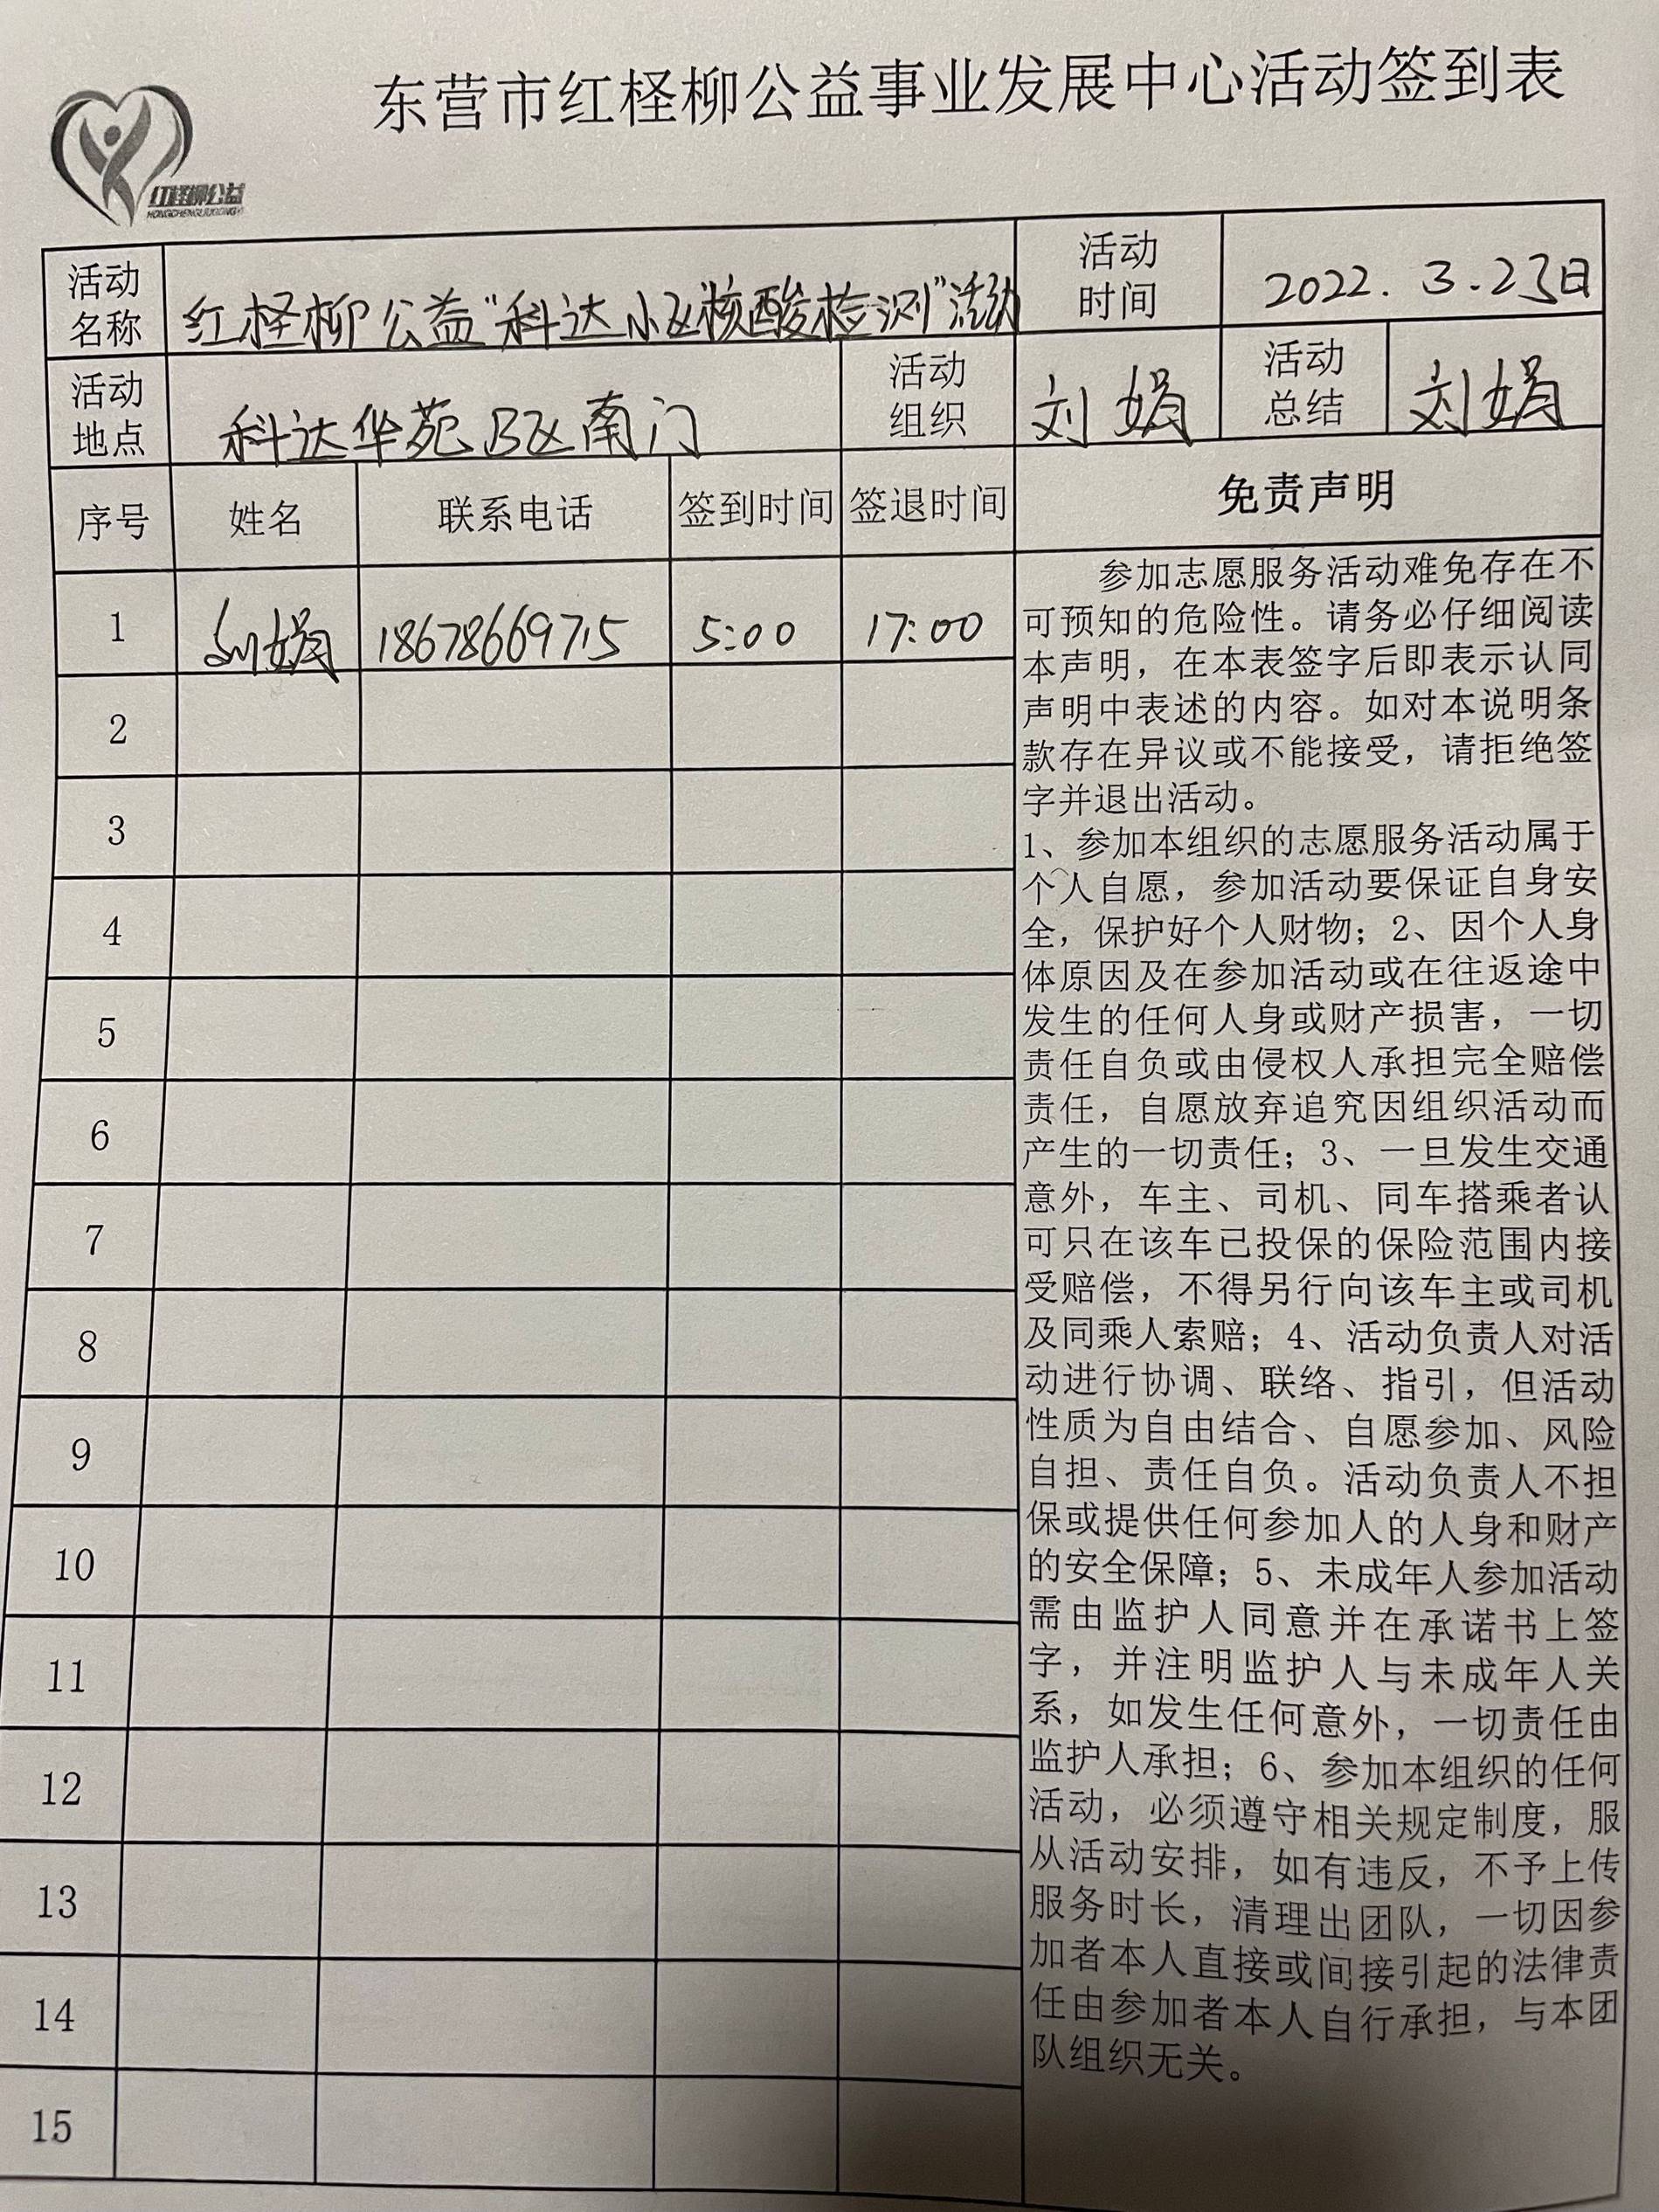 东营市红柽柳公益事业发展中心活动签到表
红柽柳公益
活动
名称
红柽柳公益“科达小区核酸检测”活动
活动
时间
2022.3.23日
活动
地点
科达华苑B区南门
活动
组织
刘娟
活动
总结
刘娟
序号
姓名
联系电话
签到时间
签退时间
免责声明
1
刘娟
18678669715
5:00
17:00
2
3
4
5
6
7
8
9
10
11
12
13
14
15
参加志愿服务活动难免存在不
可预知的危险性。请务必仔细阅读
本声明，在本表签字后即表示认同
声明中表述的内容。如对本说明条
款存在异议或不能接受，请拒绝签
字并退出活动。
1、参加本组织的志愿服务活动属于
个人自愿，参加活动要保证自身安
全，保护好个人财物；2、因个人身
体原因及在参加活动或在往返途中
发生的任何人身或财产损害，一切
责任自负或由侵权人承担完全赔偿
责任，自愿放弃追究因组织活动而
产生的一切责任；3、一旦发生交通
意外，车主、司机、同车搭乘者认
可只在该车已投保的保险范围内接
受赔偿，不得另行向该车主或司机
及同乘人索赔；4、活动负责人对活
动进行协调、联络、指引，但活动
性质为自由结合、自愿参加、风险
自担、责任自负。活动负责人不担
保或提供任何参加人的人身和财产
的安全保障；5、未成年人参加活动
需由监护人同意并在承诺书上签
字，并注明监护人与未成年人关
系，如发生任何意外，一切责任由
监护人承担；6、参加本组织的任何
活动，必须遵守相关规定制度，服
从活动安排，如有违反，不予上传
服务时长，清理出团队，一切因参
加者本人直接或间接引起的法律责
任由参加者本人自行承担，与本团
队组织无关。